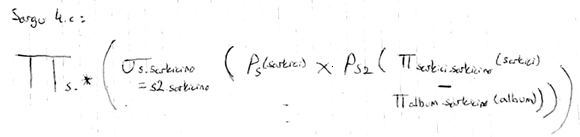 Sorgu 4.c:
π s.* ( σ s.sarkicino = s2.sarkicino ( ρ s (sarkici) × ρ s2 ( π sarkici.sarkicino (sarkici) − π album.sarkicino (album) ) ) )